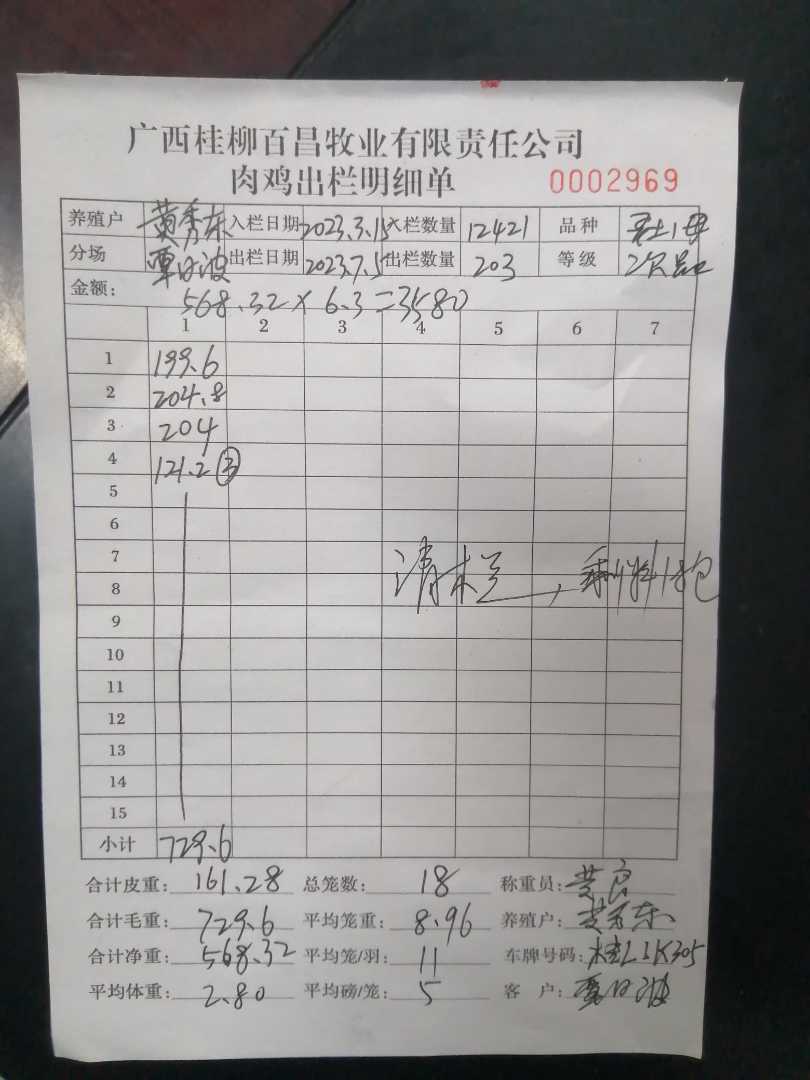 广西桂柳百昌牧业有限责任公司
肉鸡出栏明细单 0002969
养殖户 黄秀东 入栏日期 2023.3.15 入栏数量 12421 品种 土1母
分场 覃日波 出栏日期 2023.7.5 出栏数量 203 等级 次品
金额: 568.32 × 6.3 = 3580
1 2 3 4 5 6 7
1 199.6
2 204.8
3 204
4 121.2 ③
5
6
7 清栏, 剩料1包
8
9
10
11
12
13
14
15
小计 729.6
合计皮重: 161.28 总笼数: 18 称重员: 黄
合计毛重: 729.6 平均笼重: 8.96 养殖户: 黄秀东
合计净重: 568.32 平均笼/羽: 11 车牌号码: 桂L1K305
平均体重: 2.80 平均磅/笼: 5 客户: 覃日波